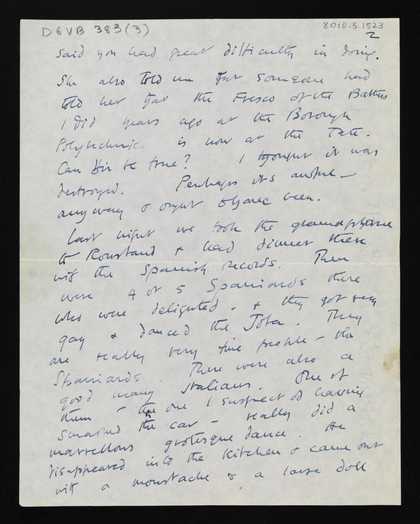 D & VB 383 (3)
8010.5.1523
2
said you had great difficulty in doing.
She also told me that someone had
told her that the Fresco of the Bathers
I did years ago at the Borough
Polytechnic is now at the Tate.
Can this be true? I thought it was
destroyed. Perhaps its another –
anyway it ought to have been.
Last night we took the gramophone
to Roustand & had dinner there
with the Spanish records. There
were 4 or 5 Spaniards there
who were delighted, & they got very
gay & danced the Jota. They
are really very fine people – the
Spaniards. There were also a
good many Italians. One of
them – the one I suspect of having
the car – really did a
marvellous grotesque dance. He
disappeared into the kitchen & came out
with a moustache & a large doll